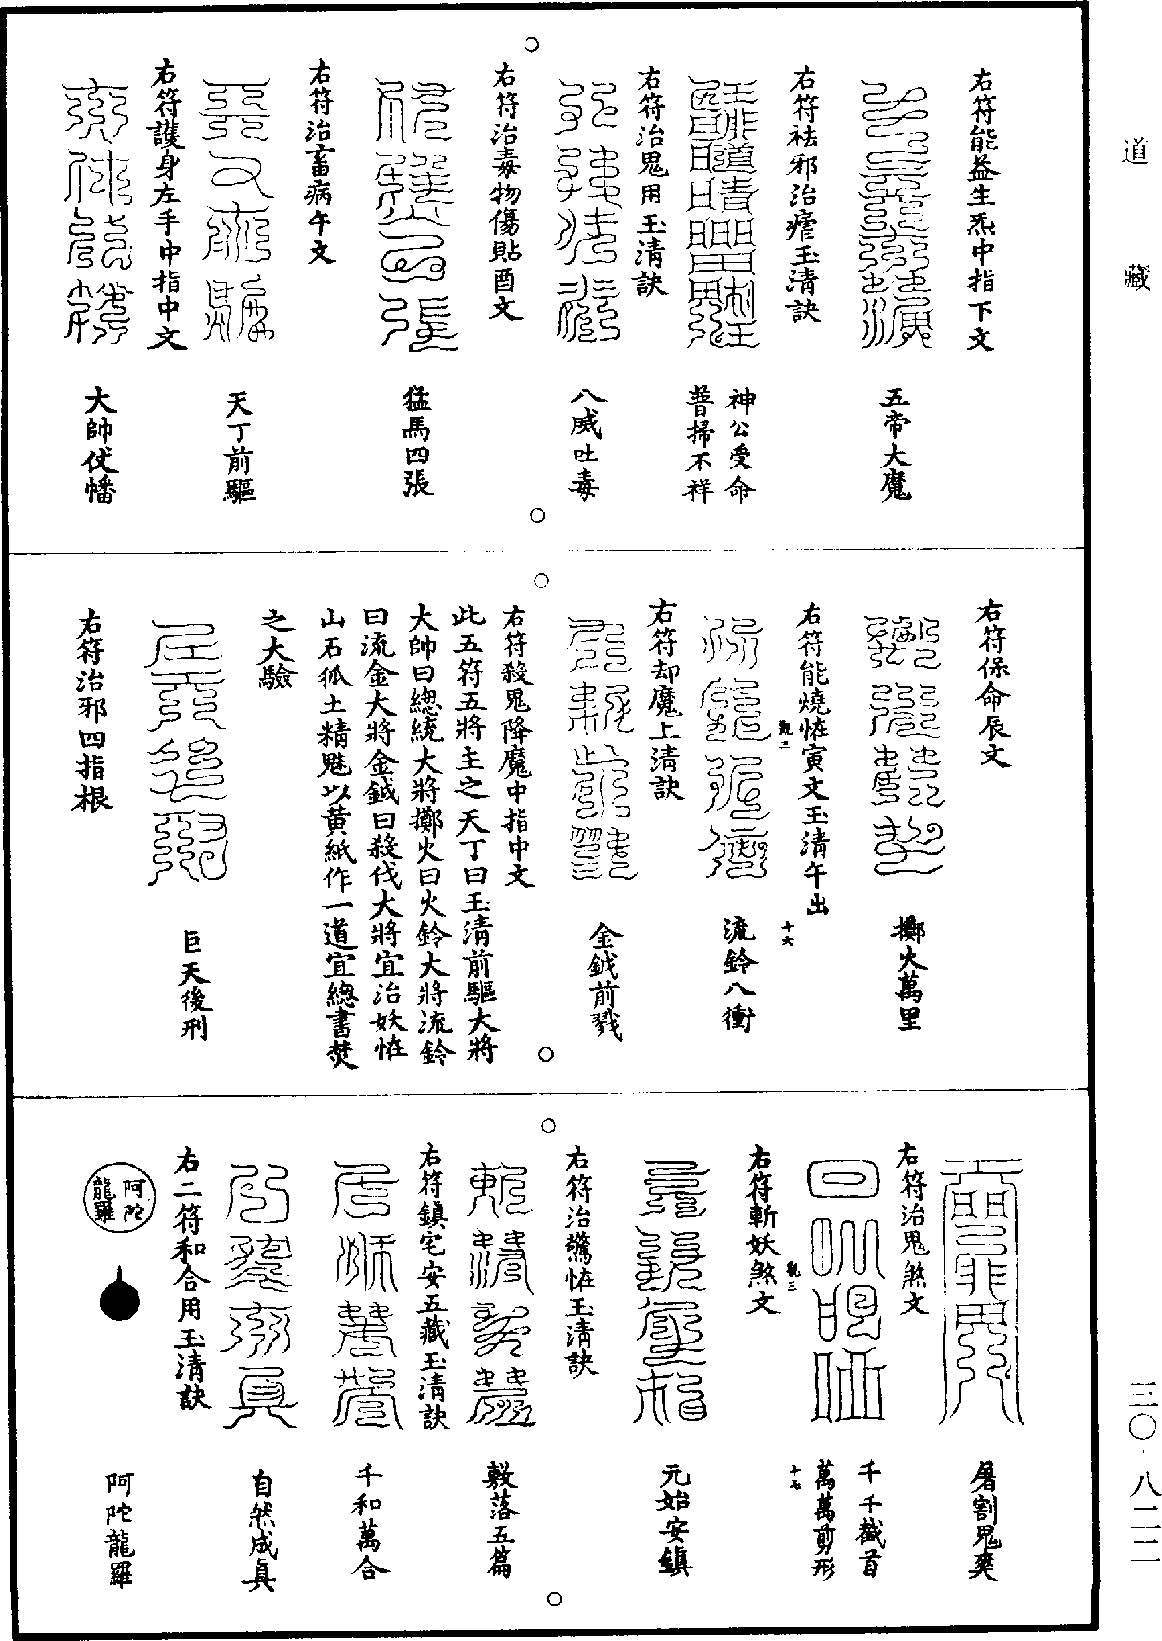 道藏
右符能益生炁中指下文
五帝大魔
右符祛邪治瘧玉清訣
神公受命
普掃不祥
右符治鬼用玉清訣
八威吐毒
右符治毒物傷貼酉文
猛馬四張
右符治畜病午文
天丁前驅
右符護身左手中指中文
大帥伏幡
右符保命辰文
擲火萬里
右符能燒恠寅文玉清午出
觀二
十六
流鈴八衝
右符却魔上清訣
金鉞前戮
右符殺鬼降魔中指中文
此五符五將主之天丁曰玉清前驅大將
大帥曰總統大將擲火曰火鈴大將流鈴
曰流金大將金鉞曰殺伐大將宜治妖恠
山石狐土精魅以黃紙作一道宜總書焚
之大驗
巨天後刑
右符治邪四指根
屠割鬼爽
右符治鬼煞文
千千截首
萬萬剪形
右符斬妖煞文
觀三
十七
元始安鎮
右符治驚恠玉清訣
敷落五篇
右符鎮宅安五藏玉清訣
千和萬合
自然成真
右二符和合用玉清訣
阿陀
龍羅
阿陀龍羅
三〇·八二二